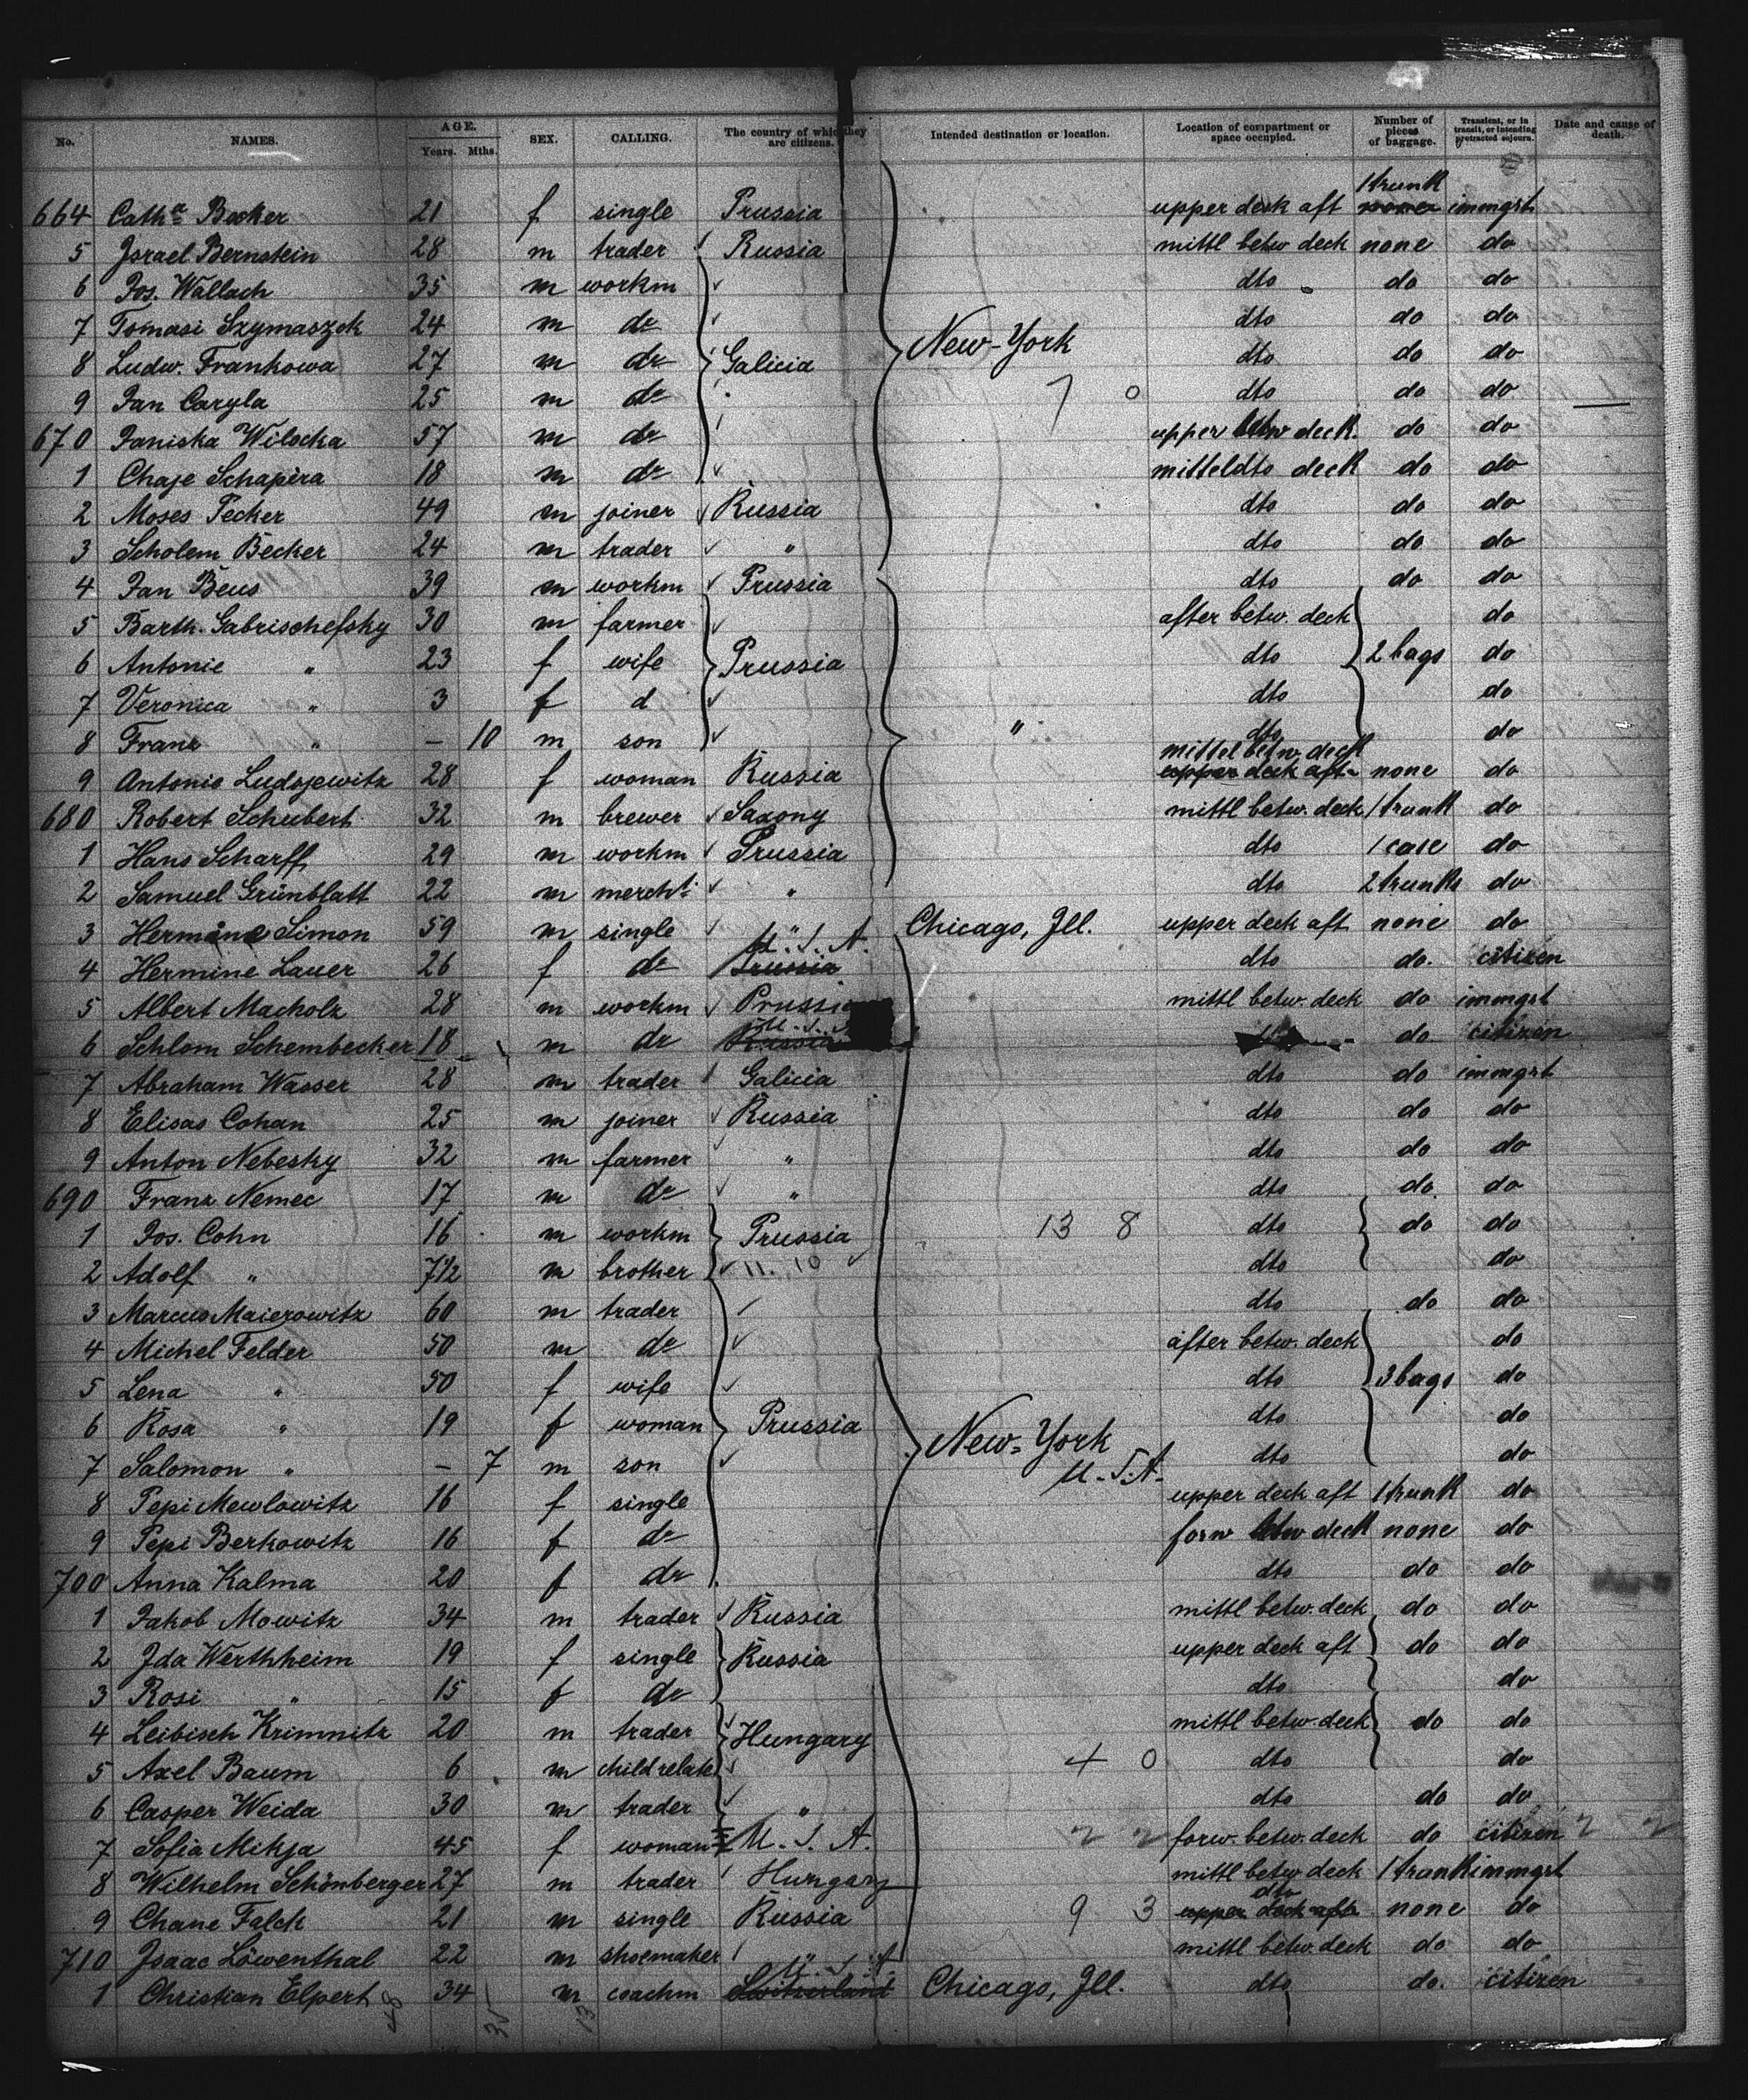 No. NAMES. AGE. Years. Mths. SEX. CALLING. The country of which they are citizens. Intended destination or location. Location of compartment or space occupied. Number of pieces of baggage. Transient, or in transit, or intending protracted sojourn. Date and cause of death.
1 trunk
664 Cath^a Becker 21 f single Prussia upper deck aft none immgrt
5 Israel Bernstein 28 m trader Russia mittl betw deck none do
6 Jos. Wallach 35 m workm dto do do
7 Tomasi Szymaszek 24 m do dto do do
8 Ludw. Frankowa 27 m do Galicia New-York dto do do
9 Jan Caryla 25 m do 7 0 dto do do
670 Janiska Wilocka 57 m do upper betw deck. do do
1 Chaje Schapira 18 m do mittel dto deck do do
2 Moses Pecker 49 m joiner Russia dto do do
3 Scholem Becker 24 m trader " dto do do
4 Jan Beus 39 m workm Prussia dto do do
5 Barth. Gabrischefsky 30 m farmer after betw. deck do
6 Antonie " 23 f wife Prussia dto 2 bags do
7 Veronica " 3 f d dto do
8 Franz " – 10 m son " dto do
mittel betw deck
9 Antonie Ludsjewitz 28 f woman Russia upper deck aft none do
680 Robert Schubert 32 m brewer Saxony mittl betw. deck 1 trunk do
1 Hans Scharff 29 m workm Prussia dto 1 case do
2 Samuel Grünblatt 22 m mercht " dto 2 trunks do
3 Hermine Simon 59 m single " Chicago, Ill. upper deck aft none do
U. S. A.
4 Hermine Lauer 26 f do Prussia dto do. citizen
5 Albert Macholz 28 m workm Prussia mittl betw. deck do immgrt
U. S.
6 Schlom Schembecker 18 m do Russia do citizen
7 Abraham Wasser 28 m trader Galicia dto do immgrt
8 Elisas Cohan 25 m joiner Russia dto do do
9 Anton Nebesky 32 m farmer " dto do do
690 Franz Nemec 17 m do " dto do do
1 Jos. Cohn 16 m workm Prussia 13 8 dto do do
2 Adolf " 7½ m brother 11. 10 dto do
3 Marcus Maierowitz 60 m trader dto do do
4 Michel Felder 50 m do after betw. deck do
5 Lena " 50 f wife dto 3 bags do
6 Rosa " 19 f woman Prussia New-York dto do
7 Salomon " – 7 m son U.S.A. dto do
8 Pepi Mewlowitz 16 f single upper deck aft 1 trunk do
9 Pepi Berkowitz 16 f do forw betw deck none do
700 Anna Kalma 20 f do dto do do
1 Jakob Mowitz 34 m trader Russia mittl betw. deck do do
2 Ida Werthheim 19 f single Russia upper deck aft do do
3 Rosi " 15 f do dto do
4 Leibisch Krimnitz 20 m trader Hungary mittl betw. deck do do
5 Axel Baum 6 m child relate 4 0 dto do
6 Casper Weida 30 m trader " dto do do
7 Sofia Mikja 45 f woman U. S. A. 2 2 forw. betw. deck do citizen 2 2
8 Wilhelm Schönberger 27 m trader Hungary mittl betw deck 1 trunk immgrt
dto
9 Chane Falck 21 m single Russia 9 3 upper deck aft none do
710 Isaac Löwenthal 22 m shoemaker mittl betw. deck do do
U. S. A.
1 Christian Elpert 34 m coachm Switzerland Chicago, Ill. dto do. citizen